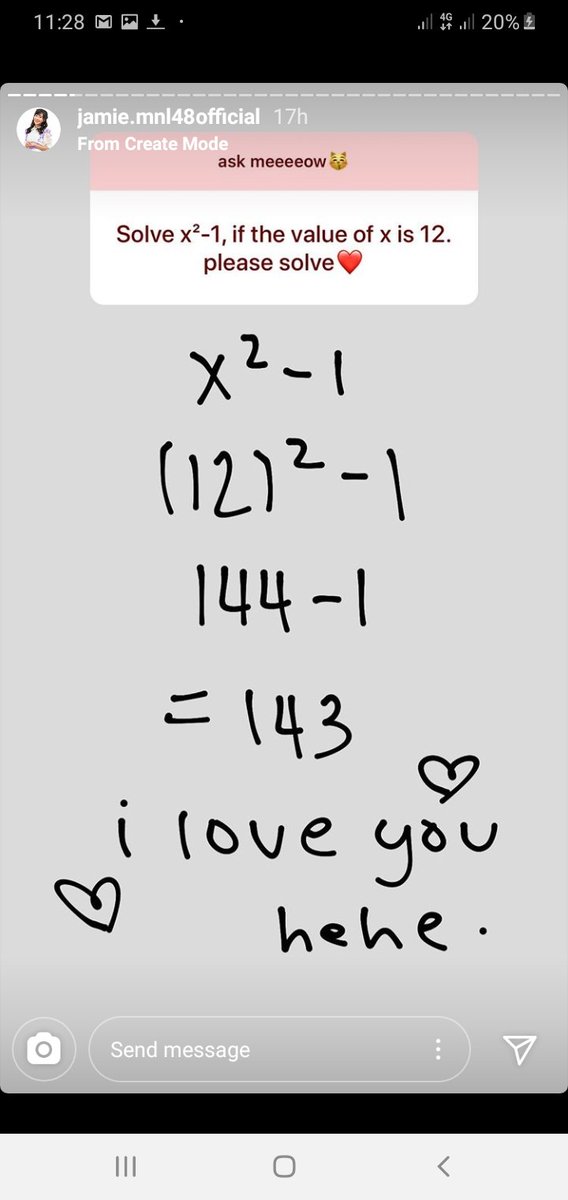 11:28 4G 20%
jamie.mnl48official 17h
From Create Mode
ask meeeeow😽
Solve x²-1, if the value of x is 12.
please solve❤️
x² - 1
(12)² - 1
144 - 1
= 143
i love you
hehe.
Send message